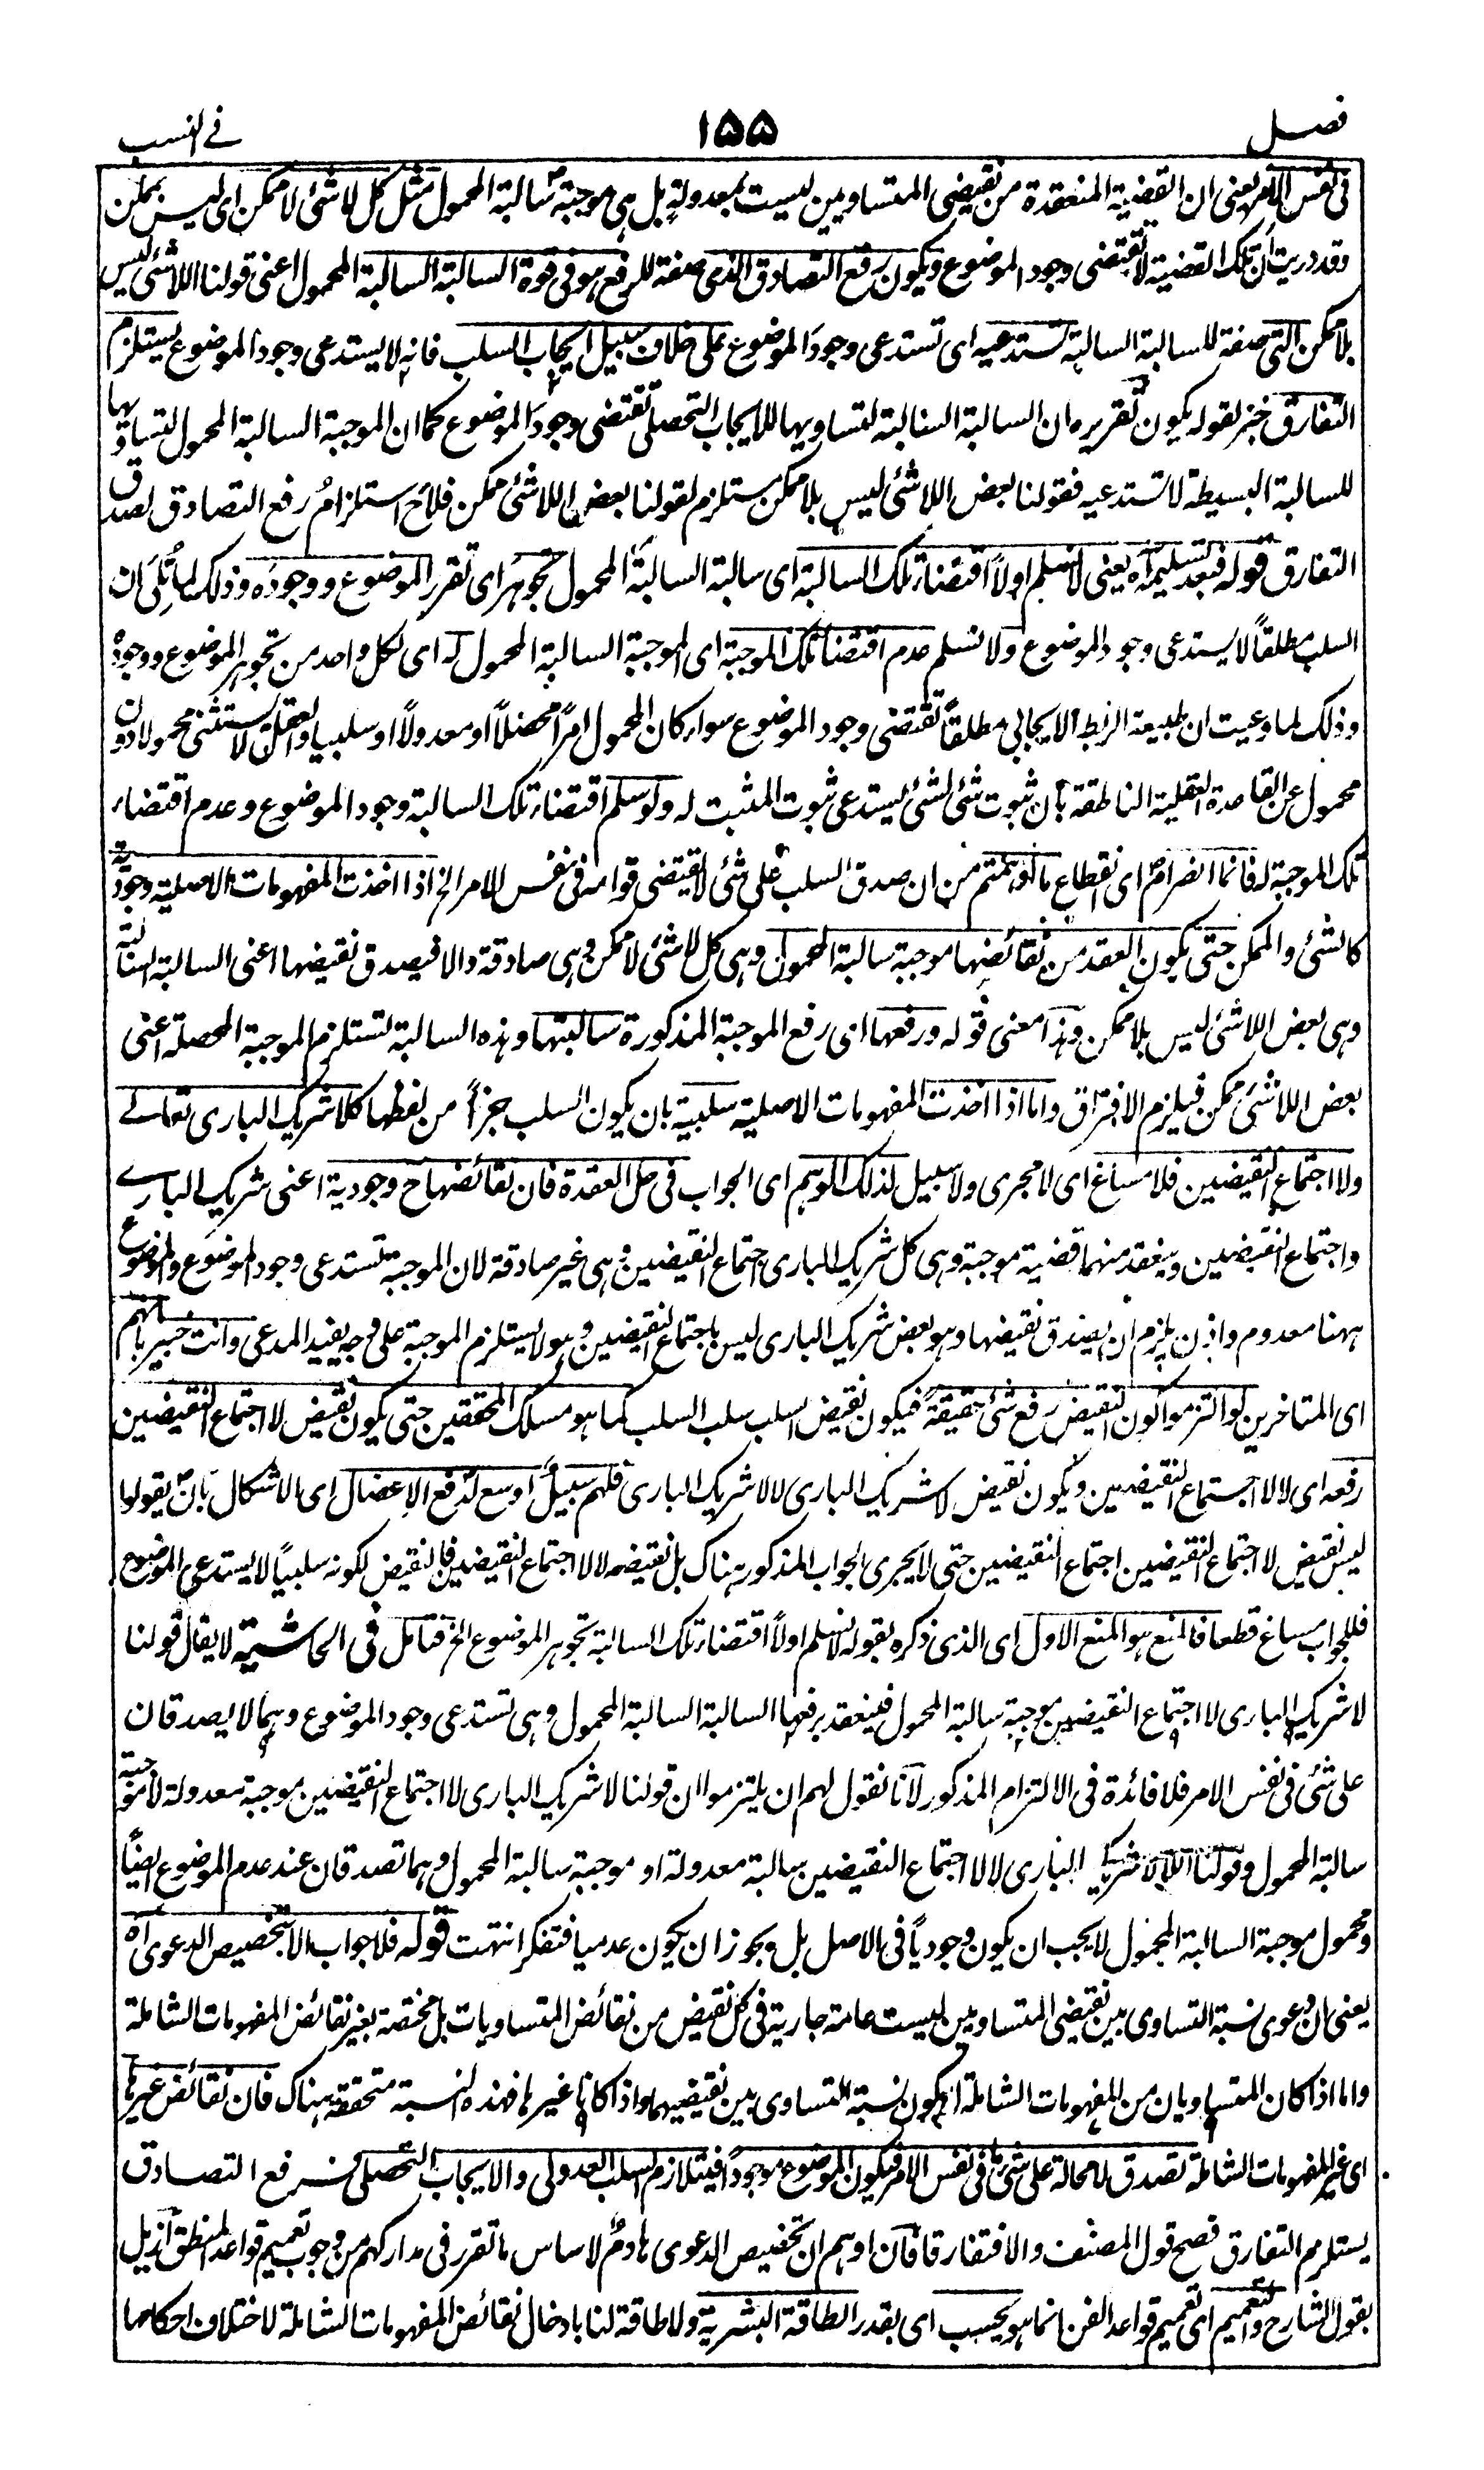 فصل ١٥٥ في النسب
في نفس الامر يعني ان القضية المنعقدة من نقيضي المتساويين ليست بمعدولة بل هي موجبة سالبة المحمول مثل كل لاشئ لا ممكن اي ليس بممكن
وقد دريت ان تلك القضية لا تقتضي وجود الموضوع ويكون رفع التصادق الذي صفة للرفع هو في قوة السالبة السالبة المحمول اعني قولنا اللاشئ ليس
بلا ممكن التي صفة للسالبة السالبة تستدعيه اي تستدعي وجود الموضوع على خلاف سبيل ايجاب السلب فانه لا يستدعي وجود الموضوع يستلزم
التفارق خبر لقوله يكون تقريره ان السالبة السالبة لتساويها للايجاب التحصلي تقتضي وجود الموضوع كما ان الموجبة السالبة المحمول لتساويها
للسالبة البسيطة لا تستدعيه فقولنا بعض اللاشئ ليس بلا ممكن مستلزم لقولنا بعض اللاشئ ممكن فلاح استلزام رفع التصادق لصدق
التفارق قوله فبعد تسليمه آه يعني لا نسلم اولاً اقتضاء تلك السالبة اي سالبة السالبة المحمول تجوهر اي تقرر الموضوع ووجوده وذلك لما تُلِىَ ان
السلب مطلقاً لا يستدعي وجود الموضوع ولا نسلم عدم اقتضاء تلك الموجبة اي الموجبة السالبة المحمول له اي لكل واحد من تجوهر الموضوع ووجوده
وذلك لما وعيت ان طبيعة الربط الايجابي مطلقاً تقتضي وجود الموضوع سواء كان المحمول امراً محصلاً او معدولاً او سلبيا والعقل لا يستثنى محمولا دون
محمول عن القاعدة العقلية الناطقة بأن ثبوت شئ لشئ يستدعي ثبوت المثبت له ولو سلم اقتضاء تلك السالبة وجود الموضوع وعدم اقتضاء
تلك الموجبة له فانما انضرام اي انقطاع ما توهمتم من ان صدق السلب على شئ لا يقتضي قوامه في نفس الامر الخ اذا اخذت المفهومات الاصلية وجودية
كالشئ والممكن حتى يكون العقد من نقائضها موجبة سالبة المحمول وهي كل لاشئ لا ممكن وهي صادقة والا فيصدق نقيضها اعني السالبة السالبة
وهي بعض اللاشئ ليس بلا ممكن وهذا معنى قوله ورفعها اي رفع الموجبة المذكورة سالبتها وهذه السالبة تستلزم الموجبة المحصلة اعني
بعض اللاشئ ممكن فيلزم الافتراق واما اذا اخذت المفهومات الاصلية سلبية بان يكون السلب جزأً من لفظها كلا شريك الباري تعالے
ولا اجتماع النقيضين فلا مساغ اي لا مجرى ولا سبيل لذلك الوهم اي الجواب في حل العقدة فان نقائضها ح وجودية اعني شريك الباري
واجتماع النقيضين وينعقد منهما قضية موجبة وهي كل شريك الباري اجتماع النقيضين وهي غير صادقة لان الموجبة تستدعي وجود الموضوع والموضوع
ههنا معدوم واذن يلزم ان يصدق نقيضها وهو بعض شريك الباري ليس باجتماع النقيضين وهو لا يستلزم الموجبة على وجه يفيد المدعى وانت خبير بانهم
اي المتاخرين لو التزموا كون النقيض رفع شئ حقيقة فيكون نقيض السلب سلب السلب كما هو مسلك المحققين حتى يكون نقيض لا اجتماع النقيضين
رفعه اي لا لا اجتماع النقيضين ويكون نقيض لا شريك الباري لا لا شريك الباري فلهم سبيل اوسع لدفع الاعضال اي الاشكال بان يقولوا
ليس نقيض لا اجتماع النقيضين اجتماع النقيضين حتى لا يجري الجواب المذكور هناك بل نقيضه لا لا اجتماع النقيضين فالنقيض لكونه سلبياً لا يستدعي الموضوع
فللجواب مساغ قطعا فالمنع هو المنع الاول اي الذي ذكره بقوله لا نسلم اولاً اقتضاء تلك السالبة تجوهر الموضوع الخ فتامل في الحاشية لا يقال قولنا
لا شريك الباري لا اجتماع النقيضين موجبة سالبة المحمول فينعقد برفعها السالبة السالبة المحمول وهي تستدعي وجود الموضوع وهما لا يصدقان
على شئ في نفس الامر فلا فائدة في الالتزام المذكور لانا نقول لهم ان يلتزموا ان قولنا لا شريك الباري لا اجتماع النقيضين موجبة معدولة لا موجبة
سالبة المحمول وقولنا اللا لا شريك الباري لا لا اجتماع النقيضين سالبة معدولة او موجبة سالبة المحمول وهما تصدقان عند عدم الموضوع ايضاً
ومحمول موجبة السالبة المحمول لا يجب ان يكون وجودياً في الاصل بل ويجوز ان يكون عدميا فتفكر انتهت قوله فلا جواب الا بتخصيص الدعوى آه
يعني ان دعوى نسبة التساوي بين نقيضي المتساويين ليست عامة جارية في كل نقيض من نقائض المتساويات بل مختصة بغير نقائض المفهومات الشاملة
واما اذا كان المتساويان من المفهومات الشاملة لا يكون نسبة التساوي بين نقيضيهما واذا كانا غيرها فهذه النسبة متحققة هناك فان نقائض غيرها
اي غير المفهومات الشاملة تصدق لا محالة على شئ ما في نفس الامر فيكون الموضوع موجوداً فيتلازم السلب العدولي والايجاب التحصلي فرفع التصادق
يستلزم التفارق فصح قول المصنف والا فتفارقا فان اوهم ان تخصيص الدعوى هادم لاساس ما تقرر في مداركهم من وجوب تعميم قواعد المنطق ازيل
بقول الشارح والتعميم اي تعميم قواعد الفن انما هو بحسب اي بقدر الطاقة البشرية ولا طاقة لنا بادخال نقائض المفهومات الشاملة لاختلاف احكامها